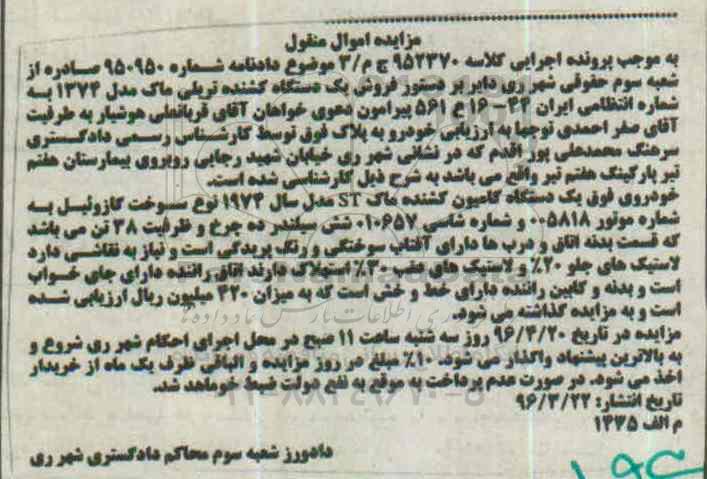 مزایده اموال منقول
به موجب پرونده اجرایی کلاسه ۹۵۲۳۷۰ ج م/۳ موضوع دادنامه شماره ۹۵۰۹۵۰ صادره از
شعبه سوم حقوقی شهرری دایر بر دستور فروش یک دستگاه کشنده تریلی ماک مدل ۱۳۷۴ به
شماره انتظامی ایران ۴۴-۱۶ ع ۵۶۱ پیرامون دعوی خواهان آقای قربانعلی هوشیار به طرفیت
آقای صفر احمدی توجها به ارزیابی خودرو به پلاک فوق توسط کارشناس رسمی دادگستری
سرهنگ محمدعلی پور اقدم که در نشانی شهر ری خیابان شهید رجایی روبروی بیمارستان هفتم
تیر پارکینگ هفتم تیر واقع می باشد به شرح ذیل کارشناسی شده است.
خودروی فوق یک دستگاه کامیون کشنده ماک ST مدل سال ۱۹۷۴ نوع سوخت گازوئیل به
شماره موتور ۰۰۵۸۱۸ و شماره شاسی ۰۱۰۶۵۷ شش سیلندر ده چرخ و ظرفیت ۳۸ تن می باشد
که قسمت بدنه اتاق و درب ها دارای آفتاب سوختگی و رنگ پریدگی است و نیاز به نقاشی دارد
لاستیک های جلو ۲۰٪ و لاستیک های عقب ۳۰٪ استهلاک دارند اتاق راننده دارای جای خواب
است و بدنه و کابین راننده دارای خط و خش است که به میزان ۳۲۰ میلیون ریال ارزیابی شده
است و به مزایده گذاشته می شود.
مزایده در تاریخ ۹۶/۳/۲۰ روز سه شنبه ساعت ۱۱ صبح در محل اجرای احکام شهر ری شروع و
به بالاترین پیشنهاد واگذار می شود. ۱۰٪ مبلغ در روز مزایده و الباقی ظرف یک ماه از خریدار
اخذ می شود. در صورت عدم پرداخت به موقع به نفع دولت ضبط خواهد شد.
تاریخ انتشار: ۹۶/۳/۲۲
م الف ۱۴۳۵
دادورز شعبه سوم محاکم دادگستری شهر ری